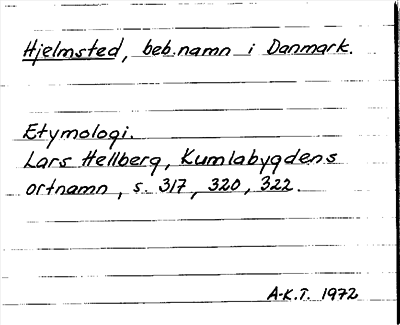 Hjelmsted, beb.namn i Danmark.
Etymologi.
Lars Hellberg, Kumlabygdens
ortnamn, s. 317, 320, 322.
A-K.T. 1972